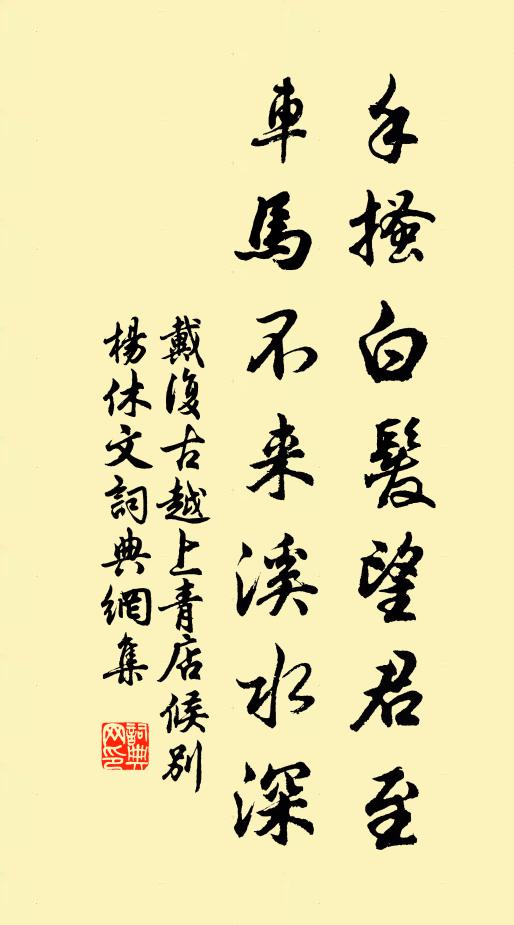 手搔白髮望君至
車馬不来溪水深
戴復古越上青店候別
楊休文詞典網集
詞典网印